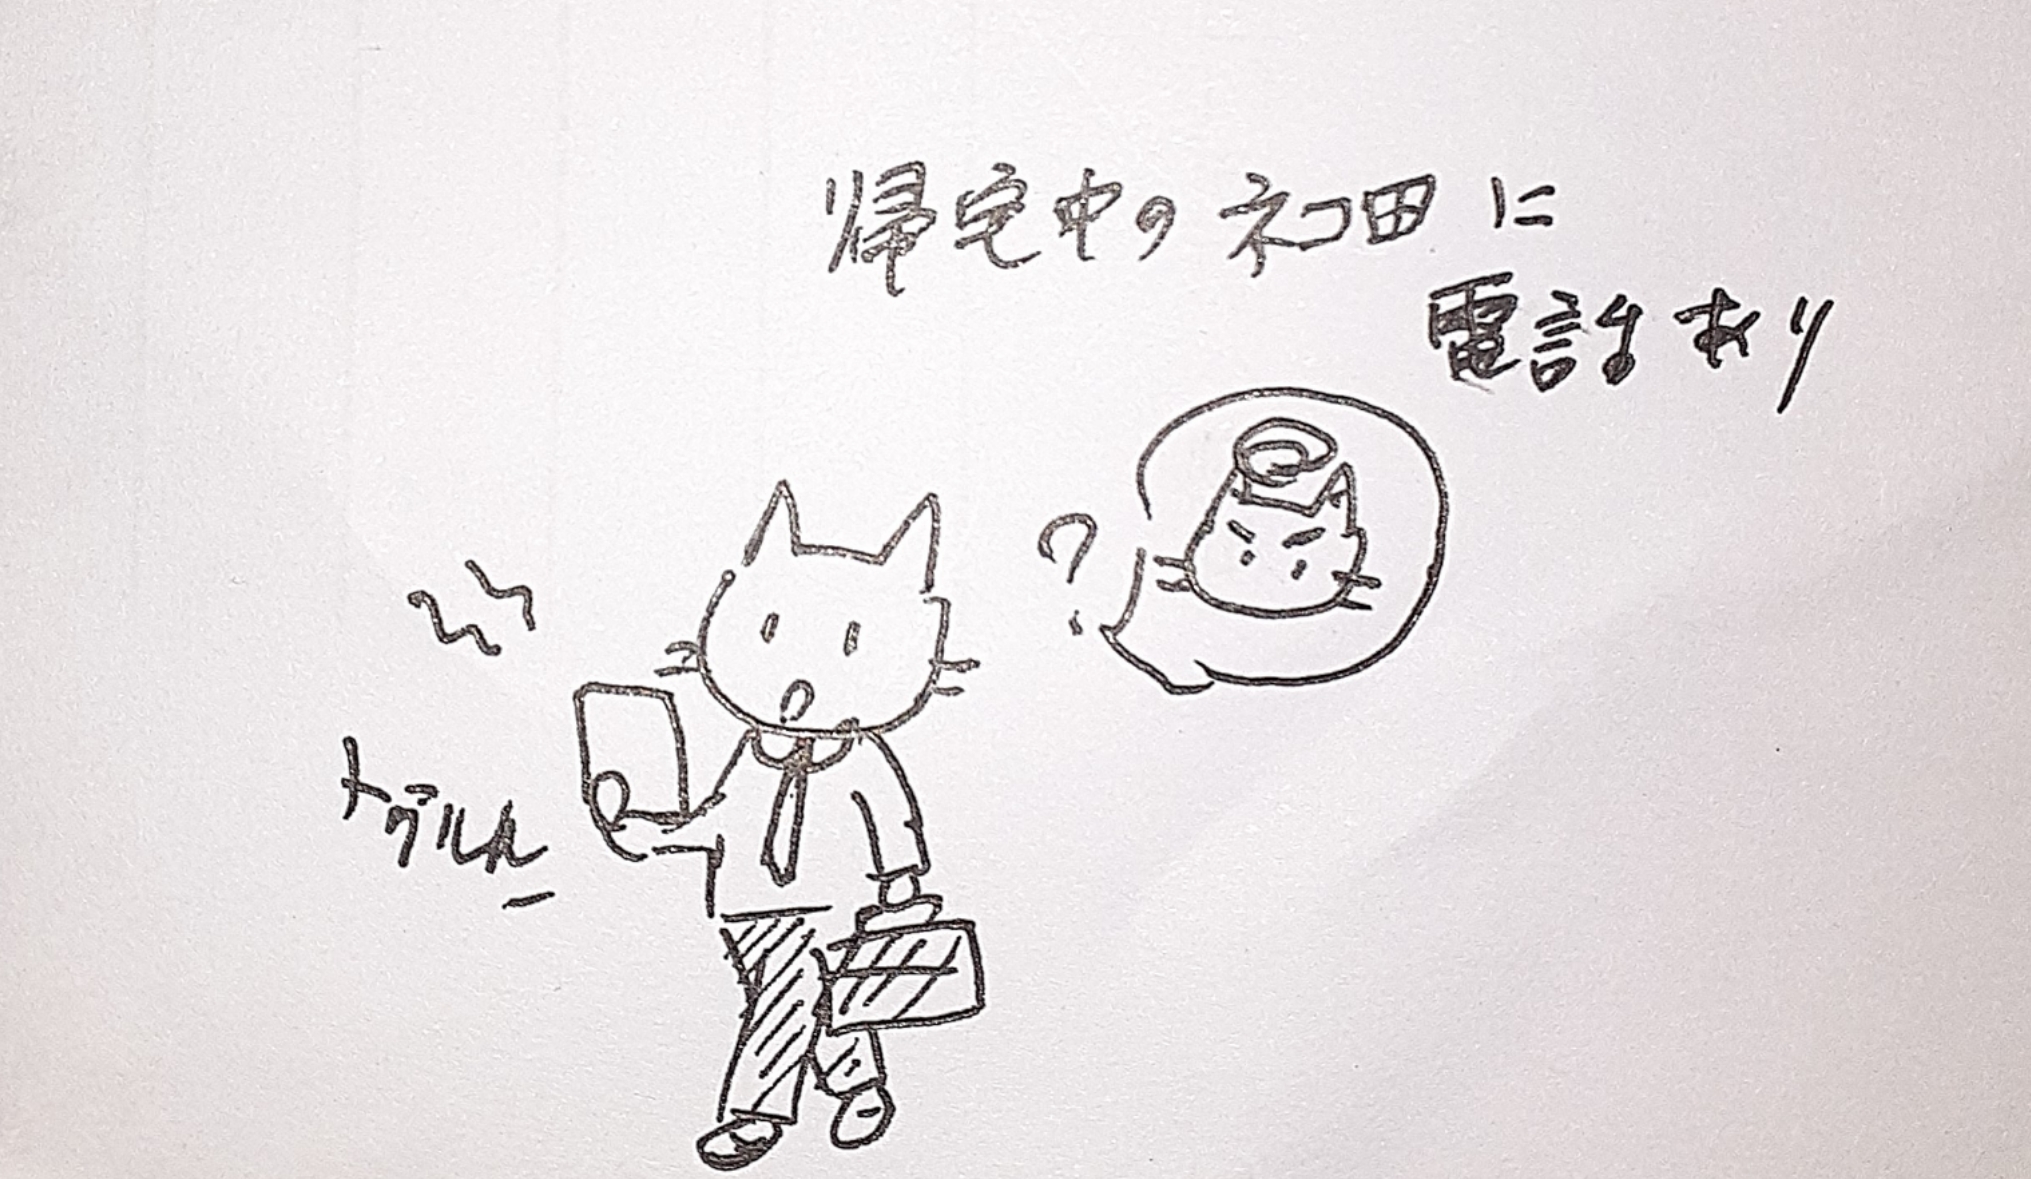 帰宅中のネコ田に
電話あり
?
トゥルルー